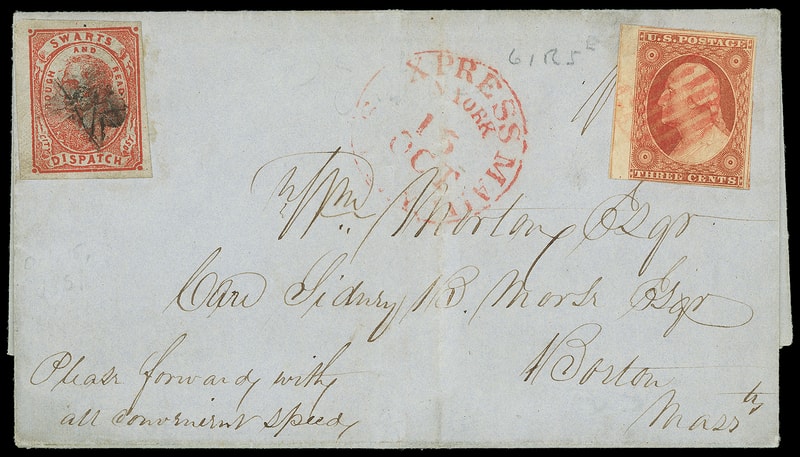 SWARTS
AND
ROUGH READY
CITY POST
DISPATCH
EXPRESS MAIL
N. YORK
15
OCT
61R5
U.S. POSTAGE
THREE CENTS
Wm. Morton, Esqr
Care Sidney B. Morse Esqr
Boston
Mass
Please forward, with
all convenient speed,